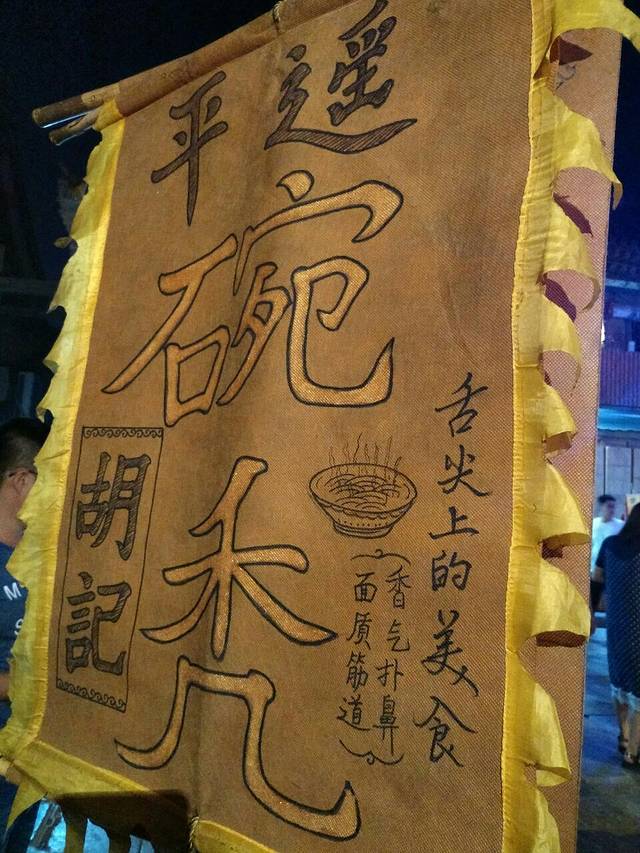 平遥
碗秃
胡記
舌尖上的美食
香气扑鼻
面质筋道